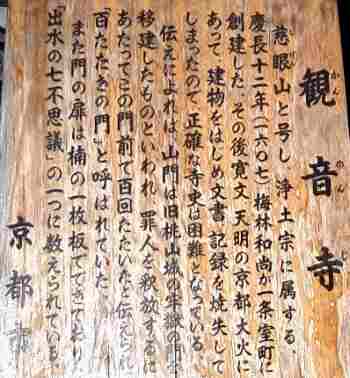 観音寺
かんのんじ
慈眼山と号し、浄土宗に属する。
慶長十二年(一六〇七)梅林和尚が一条室町に
創建した。その後寛文、天明の京都大火に
あって、建物をはじめ文書、記録を焼失して
しまったので、正確な寺史は困難となっている。
伝えによれば、山門は旧桃山城の牢獄の門を
移建したものといわれ、罪人を釈放するに
あたってこの門前で百回たたいたと伝えられ
「百たたきの門」と呼ばれていた。
また門の扉は楠の一枚板でできており、
「出水の七不思議」の一つに数えられている。
京都市